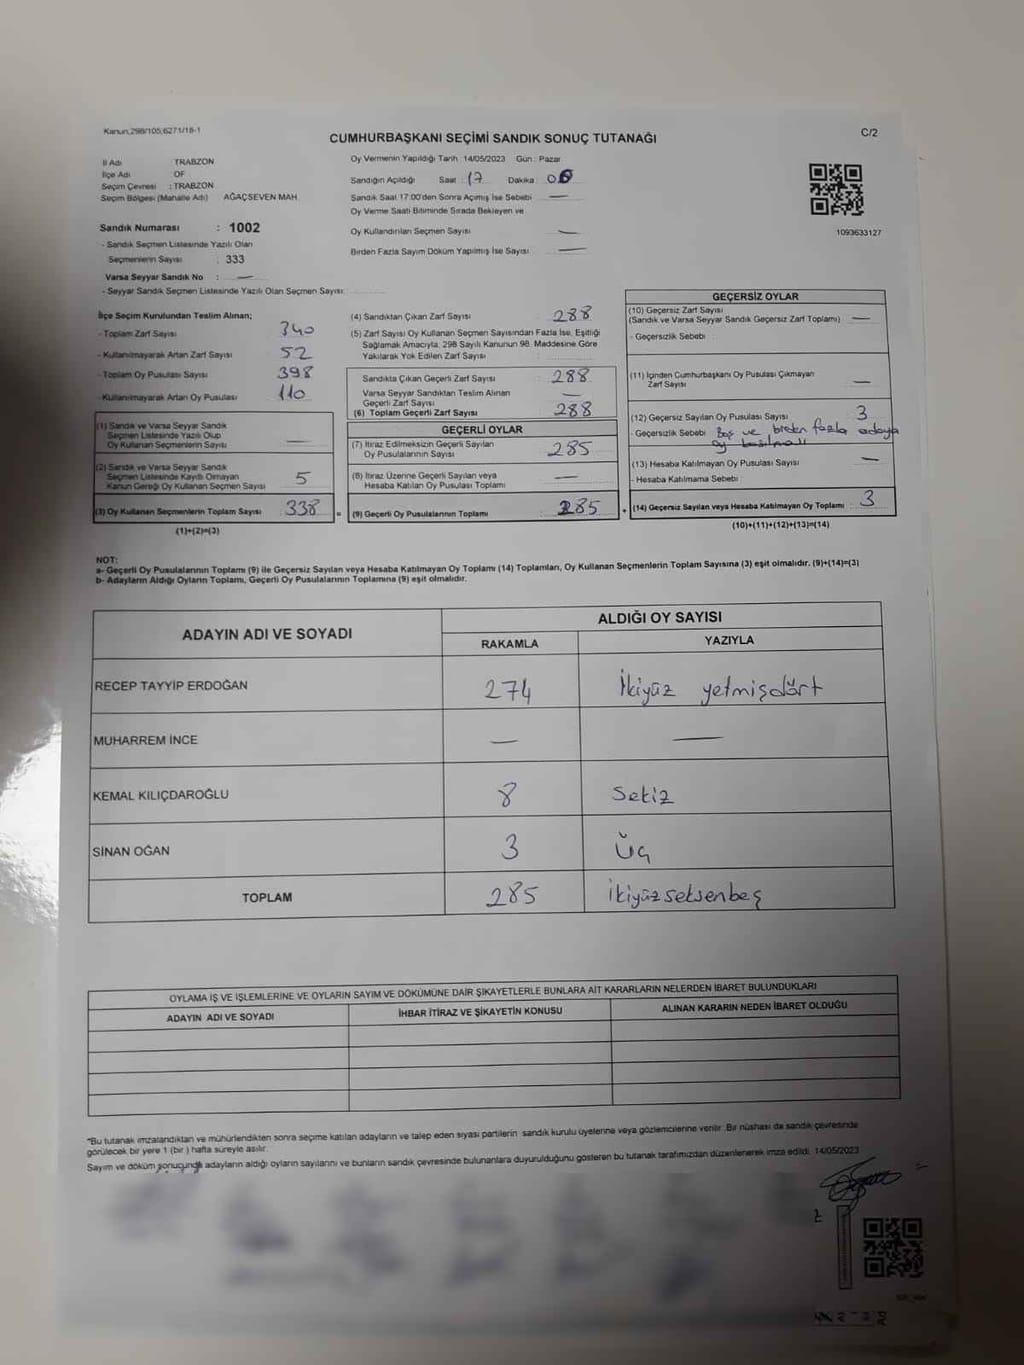 Kanun,298/105,6271/18-1
CUMHURBAŞKANI SEÇİMİ SANDIK SONUÇ TUTANAĞI
C/2
İl Adı : TRABZON
İlçe Adı : OF
Seçim Çevresi : TRABZON
Seçim Bölgesi (Mahalle Adı) AĞAÇSEVEN MAH.
Sandık Numarası : 1002
- Sandık Seçmen Listesinde Yazılı Olan
Seçmenlerin Sayısı : 333
Varsa Seyyar Sandık No : —
- Seyyar Sandık Seçmen Listesinde Yazılı Olan Seçmen Sayısı:
Oy Vermenin Yapıldığı Tarih : 14/05/2023 Gün : Pazar
Sandığın Açıldığı Saat : 17 Dakika : 06
Sandık Saat 17:00'den Sonra Açımış İse Sebebi —
Oy Verme Saati Bitiminde Sırada Bekleyen ve
Oy Kullandırılan Seçmen Sayısı —
Birden Fazla Sayım Döküm Yapılmış İse Sayısı —
1093633127
İlçe Seçim Kurulundan Teslim Alınan;
- Toplam Zarf Sayısı 340
- Kullanılmayarak Artan Zarf Sayısı 52
- Toplam Oy Pusulası Sayısı 398
- Kullanılmayarak Artan Oy Pusulası 110
(1) Sandık ve Varsa Seyyar Sandık
Seçmen Listesinde Yazılı Olup
Oy Kullanan Seçmenlerin Sayısı —
(2) Sandık ve Varsa Seyyar Sandık
Seçmen Listesinde Kayıtlı Olmayan
Kanun Gereği Oy Kullanan Seçmen Sayısı 5
(3) Oy Kullanan Seçmenlerin Toplam Sayısı 338
(1)+(2)=(3)
=
(4) Sandıktan Çıkan Zarf Sayısı 288
(5) Zarf Sayısı Oy Kullanan Seçmen Sayısından Fazla İse, Eşitliği
Sağlamak Amacıyla, 298 Sayılı Kanunun 98. Maddesine Göre
Yakılarak Yok Edilen Zarf Sayısı :
Sandıkta Çıkan Geçerli Zarf Sayısı : 288
Varsa Seyyar Sandıktan Teslim Alınan
Geçerli Zarf Sayısı —
(6) Toplam Geçerli Zarf Sayısı : 288
GEÇERLİ OYLAR
(7) İtiraz Edilmeksizin Geçerli Sayılan
Oy Pusulasının Sayısı : 285
(8) İtiraz Üzerine Geçerli Sayılan veya
Hesaba Katılan Oy Pusulası Toplamı —
(9) Geçerli Oy Pusulalarının Toplamı : 285
+
GEÇERSİZ OYLAR
(10) Geçersiz Zarf Sayısı
(Sandık ve Varsa Seyyar Sandık Geçersiz Zarf Toplamı) —
- Geçersizlik Sebebi
(11) İçinden Cumhurbaşkanı Oy Pusulası Çıkmayan
Zarf Sayısı —
(12) Geçersiz Sayılan Oy Pusulası Sayısı 3
- Geçersizlik Sebebi Boş ve birden fazla adaya
oy basılması
(13) Hesaba Katılmayan Oy Pusulası Sayısı —
- Hesaba Katılmama Sebebi
(14) Geçersiz Sayılan veya Hesaba Katılmayan Oy Toplamı : 3
(10)+(11)+(12)+(13)=(14)
NOT:
a- Geçerli Oy Pusulalarının Toplamı (9) ile Geçersiz Sayılan veya Hesaba Katılmayan Oy Toplamı (14) Toplamları, Oy Kullanan Seçmenlerin Toplam Sayısına (3) eşit olmalıdır. (9)+(14)=(3)
b- Adayların Aldığı Oyların Toplamı, Geçerli Oy Pusulalarının Toplamına (9) eşit olmalıdır.
ADAYIN ADI VE SOYADI
ALDIĞI OY SAYISI
RAKAMLA YAZIYLA
RECEP TAYYİP ERDOĞAN 274 İkiyüz yetmişdört
MUHARREM İNCE — —
KEMAL KILIÇDAROĞLU 8 Sekiz
SİNAN OĞAN 3 Üç
TOPLAM 285 ikiyüzseksenbeş
OYLAMA İŞ VE İŞLEMLERİNE VE OYLARIN SAYIM VE DÖKÜMÜNE DAİR ŞİKAYETLERLE BUNLARA AİT KARARLARIN NELERDEN İBARET BULUNDUKLARI
ADAYIN ADI VE SOYADI İHBAR İTİRAZ VE ŞİKAYETİN KONUSU ALINAN KARARIN NEDEN İBARET OLDUĞU
*Bu tutanak imzalandıktan ve mühürlendikten sonra seçime katılan adayların ve talep eden siyasi partilerin sandık kurulu üyelerine veya gözlemcilerine verilir. Bir nüshası da sandık çevresinde
görülecek bir yere 1 (bir) hafta süreyle asılır.
Sayım ve döküm sonucunda adayların aldığı oyların sayılarını ve bunların sandık çevresinde bulunanlara duyurulduğunu gösteren bu tutanak tarafımızdan düzenlenerek imza edildi. 14/05/2023